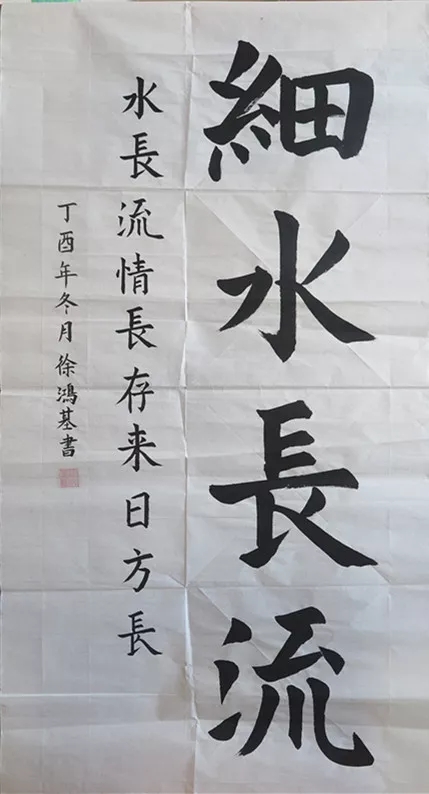 細水長流
水長流情長存来日方長
丁酉年冬月徐鴻基書